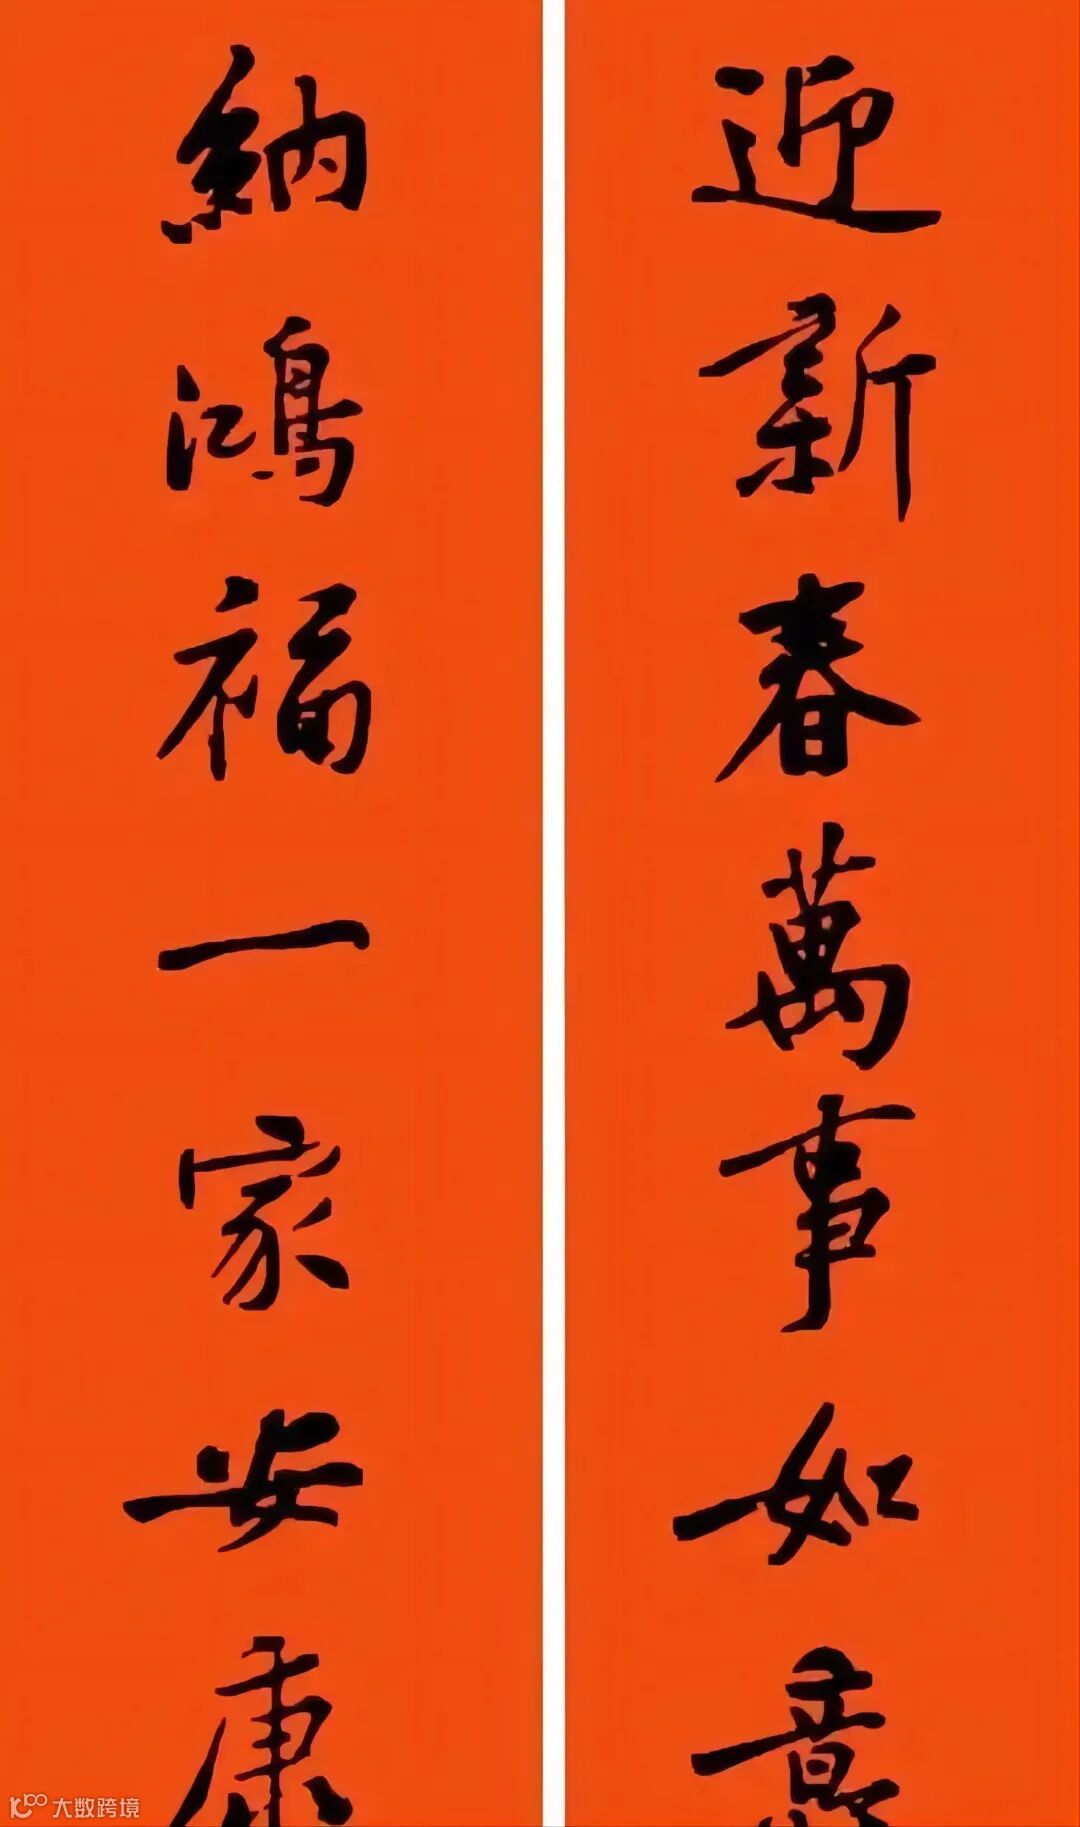 迎新春萬事如意
納鴻福一家安康
大数跨境